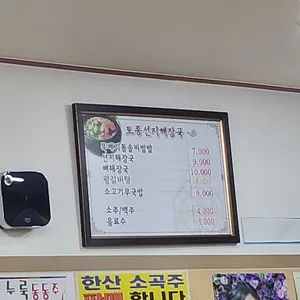 토종선지해장국
돌솥비빔밥 7,000
선지해장국 9,000
뼈해장국 10,000
왕갈비탕
소고기무국밥 9,000
소주/맥주 4,000
음료수 1,000
누룩동동주
한산 소곡주
판매합니다